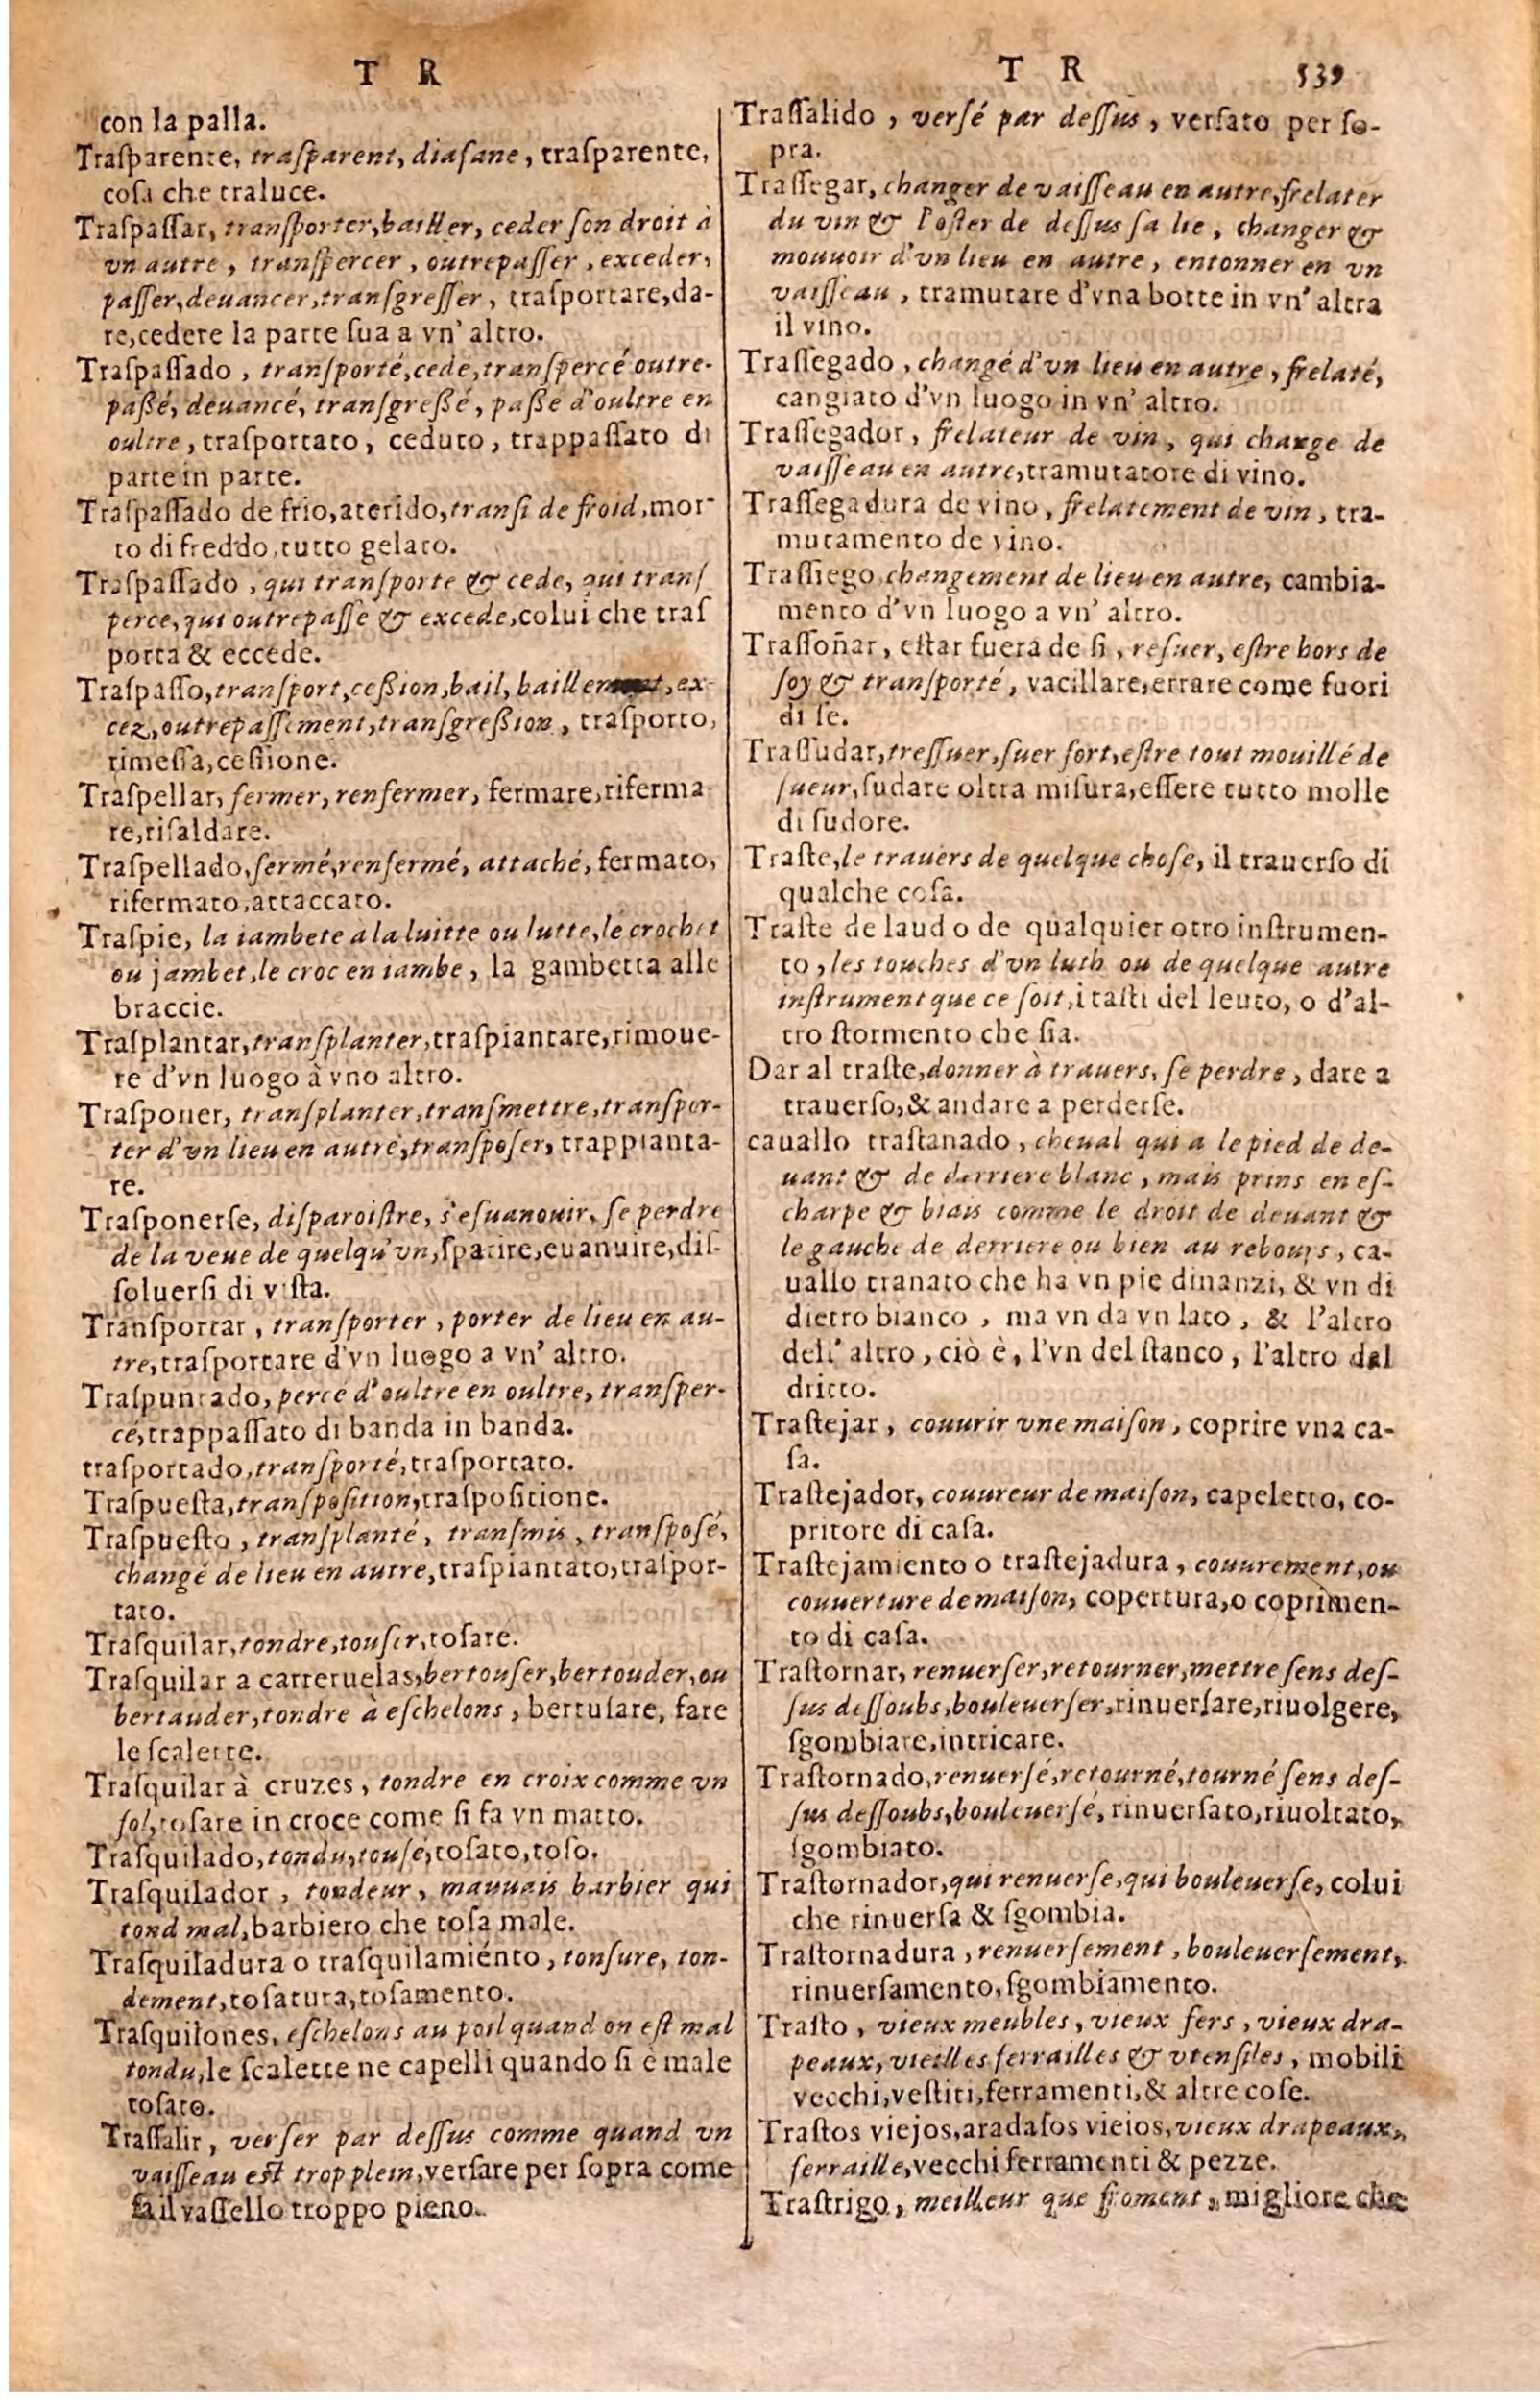 T R
con la palla.
Traſparente, traſparent, diafane, traſparente,
coſa che traluce.
Traſpaſſar, tranſporter, bailler, ceder ſon droit à
vn autre, tranſpercer, outrepaſſer, exceder,
paſſer, deuancer, tranſgreſſer, traſportare, da-
re, cedere la parte ſua a vn' altro.
Traſpaſſado, tranſporté, cede, tranſpercé outre-
paßé, deuancé, tranſgreßé, paße d'oultre en
oultre, traſportato, ceduto, trappaſſato di
parte in parte.
Traſpaſſado de frio, aterido, tranſi de froid, mor-
to di freddo, tutto gelato.
Traſpaſſado, qui tranſporte & cede, qui tranſ
perce, qui outrepaſſe & excede, colui che traſ
porta & eccede.
Traſpaſſo, tranſport, ceßion, bail, baillement, ex-
cez, outrepaſſement, tranſgreßion, traſporto,
rimeſſa, ceſſione.
Traſpellar, fermer, renfermer, fermare, riferma-
re, riſaldare.
Traſpellado, fermé, renfermé, attaché, fermato,
rifermato, attaccato.
Traſpie, la iambete à la luitte ou lutte, le crochet
ou jambet, le croc en iambe, la gambetta alle
braccie.
Traſplantar, tranſplanter, traſpiantare, rimoue-
re d'vn luogo à vno altro.
Traſponer, tranſplanter, tranſmettre, tranſpor-
ter d'vn lieu en autre, tranſpoſer, trappianta-
re.
Traſponerſe, diſparoiſtre, s'eſuanouir, ſe perdre
de la veue de quelqu'vn, ſparire, euanuire, diſ-
ſoluerſi di viſta.
Tranſportar, tranſporter, porter de lieu en au-
tre, traſportare d'vn luogo a vn' altro.
Traſpuntado, percé d'oultre en oultre, tranſper-
cé, trappaſſato di banda in banda.
traſportado, tranſporté, traſportato.
Traſpueſta, tranſpoſition, traſpoſitione.
Traſpueſto, tranſplanté, tranſmis, tranſpoſé,
changé de lieu en autre, traſpiantato, traſpor-
tato.
Traſquilar, tondre, touſer, toſare.
Traſquilar a carreruelas, bertouſer, bertouder, ou
bertauder, tondre à eſchelons, bertuſare, fare
le ſcalette.
Traſquilar à cruzes, tondre en croix comme vn
fol, toſare in croce come ſi fa vn matto.
Traſquilado, tondu, touſé, toſato, toſo.
Traſquilador, tondeur, mauuais barbier qui
tond mal, barbiero che toſa male.
Traſquiladura o traſquilamiénto, tonſure, ton-
dement, toſatura, toſamento.
Traſquilones, eſchelons au poil quand on eſt mal
tondu, le ſcalette ne capelli quando ſi è male
toſato.
Traſſalir, verſer par deſſus comme quand vn
vaiſſeau eſt trop plein, verſare per ſopra come
fa il vaſſello troppo pieno.
T R 539
Traſſalido, verſé par deſſus, verſato per ſo-
pra.
Traſſegar, changer de vaiſſeau en autre, frelater
du vin & l'oſter de deſſus ſa lie, changer &
mouuoir d'vn lieu en autre, entonner en vn
vaiſſeau, tramutare d'vna botte in vn' altra
il vino.
Traſſegado, changé d'vn lieu en autre, frelaté,
cangiato d'vn luogo in vn' altro.
Traſſegador, frelateur de vin, qui change de
vaiſſeau en autre, tramutatore di vino.
Traſſegadura de vino, frelatement de vin, tra-
mutamento de vino.
Traſſiego, changement de lieu en autre, cambia-
mento d'vn luogo a vn' altro.
Traſſoñar, eſtar fuera de ſi, reſuer, eſtre hors de
ſoy & tranſporté, vacillare, errare come fuori
di ſe.
Traſſudar, treſſuer, ſuer fort, eſtre tout mouillé de
ſueur, ſudare oltra miſura, eſſere tutto molle
di ſudore.
Traſte, le trauers de quelque choſe, il trauerſo di
qualche coſa.
Traſte de laud o de qualquier otro inſtrumen-
to, les touches d'vn luth ou de quelque autre
inſtrument que ce ſoit, i taſti del leuto, o d'al-
tro ſtormento che ſia.
Dar al traſte, donner à trauers, ſe perdre, dare a
trauerſo, & andare a perderſe.
cauallo traſtanado, cheual qui a le pied de de-
uant & de derriere blanc, mais prins en eſ-
charpe & biais comme le droit de deuant &
le gauche de derriere ou bien au rebours, ca-
uallo tranato che ha vn pie dinanzi, & vn di
dietro bianco, ma vn da vn lato, & l'altro
dell' altro, ciò è, l'vn del ſtanco, l'altro dal
dritto.
Traſtejar, couurir vne maiſon, coprire vna ca-
ſa.
Traſtejador, couureur de maiſon, capeletto, co-
pritore di caſa.
Traſtejamiento o traſtejadura, couurement, ou
couuerture de maiſon, copertura, o coprimen-
to di caſa.
Traſtornar, renuerſer, retourner, mettre ſens deſ-
ſus deſſoubs, bouleuerſer, rinuerſare, riuolgere,
ſgombiare, intricare.
Traſtornado, renuerſé, retourné, tourné ſens deſ-
ſus deſſoubs, bouleuerſé, rinuerſato, riuoltato,
ſgombiato.
Traſtornador, qui renuerſe, qui bouleuerſe, colui
che rinuerſa & ſgombia.
Traſtornadura, renuerſement, bouleuerſement,
rinuerſamento, ſgombiamento.
Traſto, vieux meubles, vieux fers, vieux dra-
peaux, vieilles ferrailles & vtenſiles, mobili
vecchi, veſtiti, ferramenti, & altre coſe.
Traſtos viejos, aradaſos vieios, vieux drapeaux,
ferraille, vecchi ferramenti & pezze.
Traſtrigo, meilleur que froment, migliore che